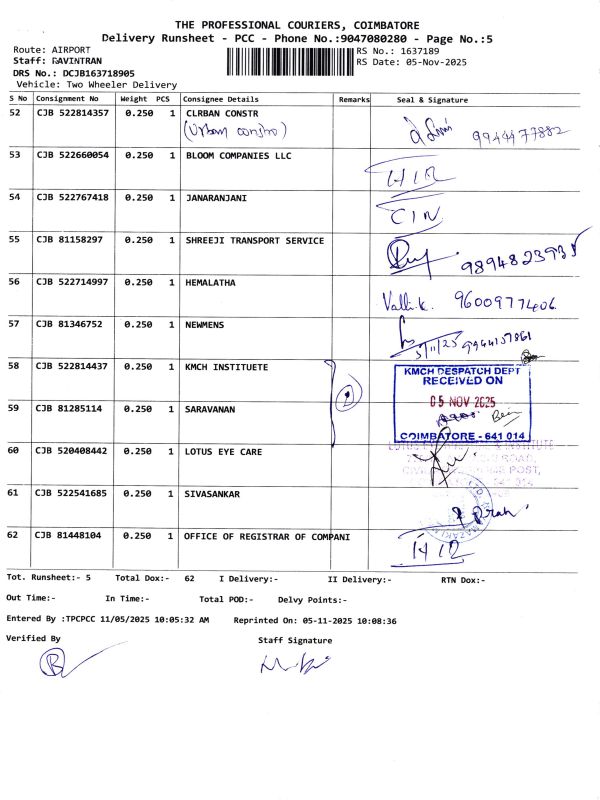 THE PROFESSIONAL COURIERS, COIMBATORE
Delivery Runsheet - PCC - Phone No.:9047080280 - Page No.:5
Route: AIRPORT
Staff: RAVINTRAN
DRS No.: DCJB163718905
Vehicle: Two Wheeler Delivery
RS No.: 1637189
RS Date: 05-Nov-2025
S No Consignment No Weight PCS Consignee Details Remarks Seal & Signature
52 CJB 522814357 0.250 1 CLRBAN CONSTR
(Urban constro) 9944477882
53 CJB 522660054 0.250 1 BLOOM COMPANIES LLC
54 CJB 522767418 0.250 1 JANARANJANI
55 CJB 81158297 0.250 1 SHREEJI TRANSPORT SERVICE
9894823935
56 CJB 522714997 0.250 1 HEMALATHA
Valli.k. 9600977406
57 CJB 81346752 0.250 1 NEWMENS
5/11/25 9944157861
58 CJB 522814437 0.250 1 KMCH INSTITUETE
KMCH DESPATCH DEPT
RECEIVED ON
05 NOV 2025
COIMBATORE - 641 014
2
59 CJB 81285114 0.250 1 SARAVANAN
60 CJB 520408442 0.250 1 LOTUS EYE CARE
61 CJB 522541685 0.250 1 SIVASANKAR
62 CJB 81448104 0.250 1 OFFICE OF REGISTRAR OF COMPANI
Tot. Runsheet:- 5 Total Dox:- 62 I Delivery:- II Delivery:- RTN Dox:-
Out Time:- In Time:- Total POD:- Delvy Points:-
Entered By :TPCPCC 11/05/2025 10:05:32 AM Reprinted On: 05-11-2025 10:08:36
Verified By Staff Signature